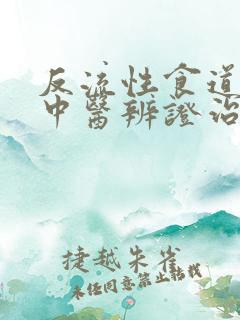 反流性食道
中醫辨證治
捷越朱雀
未经同意禁止转载